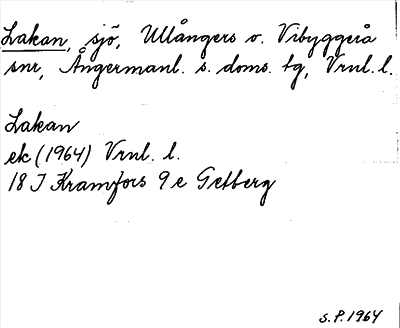 Lakan, sjö, Ullångers o. Vibyggerå
snr, Ångermanl. s. doms. tg, Vrnl. l.
Lakan
ek (1964) Vrnl. l.
18 I Kramfors 9 e Getberg
S.P. 1964